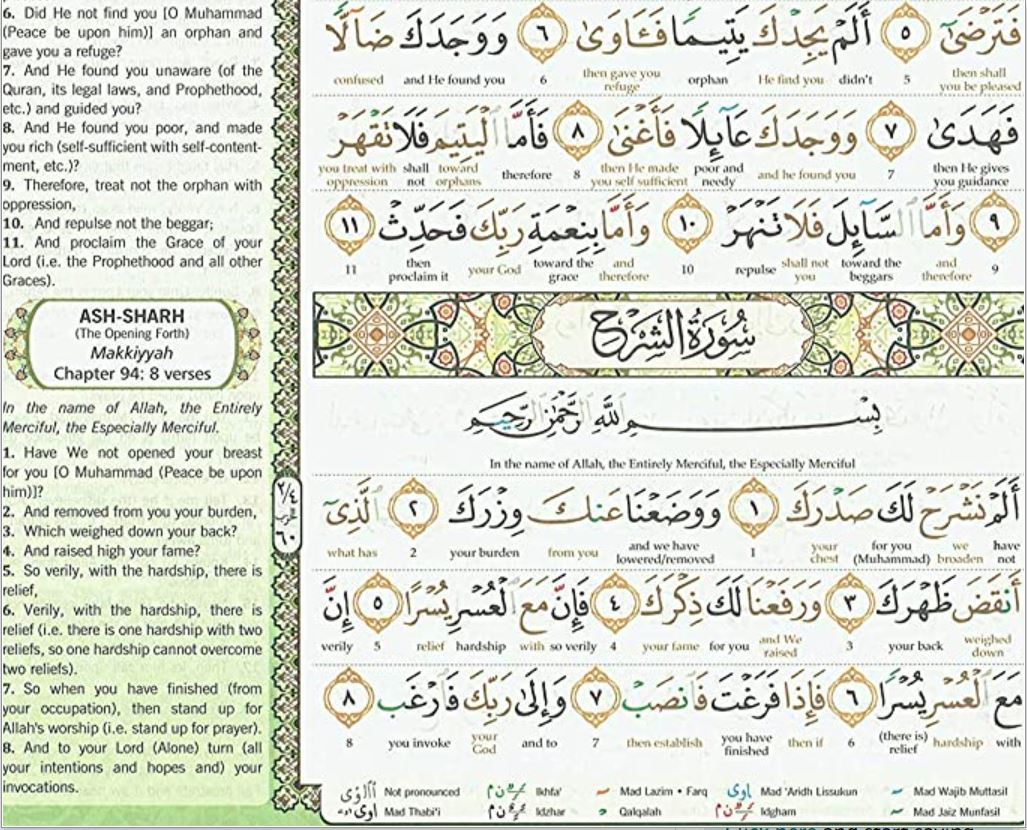 6. Did He not find you [O Muhammad
(Peace be upon him)] an orphan and
gave you a refuge?
7. And He found you unaware (of the
Quran, its legal laws, and Prophethood,
etc.) and guided you?
8. And He found you poor, and made
you rich (self-sufficient with self-content-
ment, etc.)?
9. Therefore, treat not the orphan with
oppression,
10. And repulse not the beggar;
11. And proclaim the Grace of your
Lord (i.e. the Prophethood and all other
Graces).
ASH-SHARH
(The Opening Forth)
Makkiyyah
Chapter 94: 8 verses
In the name of Allah, the Entirely
Merciful, the Especially Merciful.
1. Have We not opened your breast
for you [O Muhammad (Peace be upon
him)]?
2. And removed from you your burden,
3. Which weighed down your back?
4. And raised high your fame?
5. So verily, with the hardship, there is
relief,
6. Verily, with the hardship, there is
relief (i.e. there is one hardship with two
reliefs, so one hardship cannot overcome
two reliefs).
7. So when you have finished (from
your occupation), then stand up for
Allah's worship (i.e. stand up for prayer).
8. And to your Lord (Alone) turn (all
your intentions and hopes and) your
invocations.
٢/٤
الحزب
٦٠
فَتَرْضَىٰٓ ٥ أَلَمْ يَجِدْكَ يَتِيمًا فَـَٔاوَىٰ ٦ وَوَجَدَكَ ضَآلًّا
then shall you be pleased 5 didn't He find you orphan then gave you refuge 6 and He found you confused
فَهَدَىٰ ٧ وَوَجَدَكَ عَآئِلًا فَأَغْنَىٰ ٨ فَأَمَّا الْيَتِيمَ فَلَا تَقْهَرْ
then He gives you guidance 7 and he found you poor and needy then He made you self sufficient 8 therefore toward orphans shall not you treat with oppression
٩ وَأَمَّا السَّآئِلَ فَلَا تَنْهَرْ ١٠ وَأَمَّا بِنِعْمَةِ رَبِّكَ فَحَدِّثْ ١١
9 and therefore toward the beggars shall not you repulse 10 and therefore toward the grace your God then proclaim it 11
سُورَةُ الشَّرْحِ
بِسْمِ اللَّهِ الرَّحْمَٰنِ الرَّحِيمِ
In the name of Allah, the Entirely Merciful, the Especially Merciful
أَلَمْ نَشْرَحْ لَكَ صَدْرَكَ ١ وَوَضَعْنَا عَنكَ وِزْرَكَ ٢ الَّذِىٓ
have not we broaden for you (Muhammad) your chest 1 and we have lowered/removed from you your burden 2 what has
أَنقَضَ ظَهْرَكَ ٣ وَرَفَعْنَا لَكَ ذِكْرَكَ ٤ فَإِنَّ مَعَ الْعُسْرِ يُسْرًا ٥ إِنَّ
weighed down your back 3 and We raised for you your fame 4 so verily with hardship relief 5 verily
مَعَ الْعُسْرِ يُسْرًا ٦ فَإِذَا فَرَغْتَ فَانصَبْ ٧ وَإِلَىٰ رَبِّكَ فَارْغَب ٨
with hardship (there is) relief 6 then if you have finished then establish 7 and to your God you invoke 8
Not pronounced Ikhfa' Mad Lazim • Farq Mad 'Aridh Lissukun Mad Wajib Muttasil
Mad Thabi'i Idzhar Qalqalah Idgham Mad Jaiz Munfasil